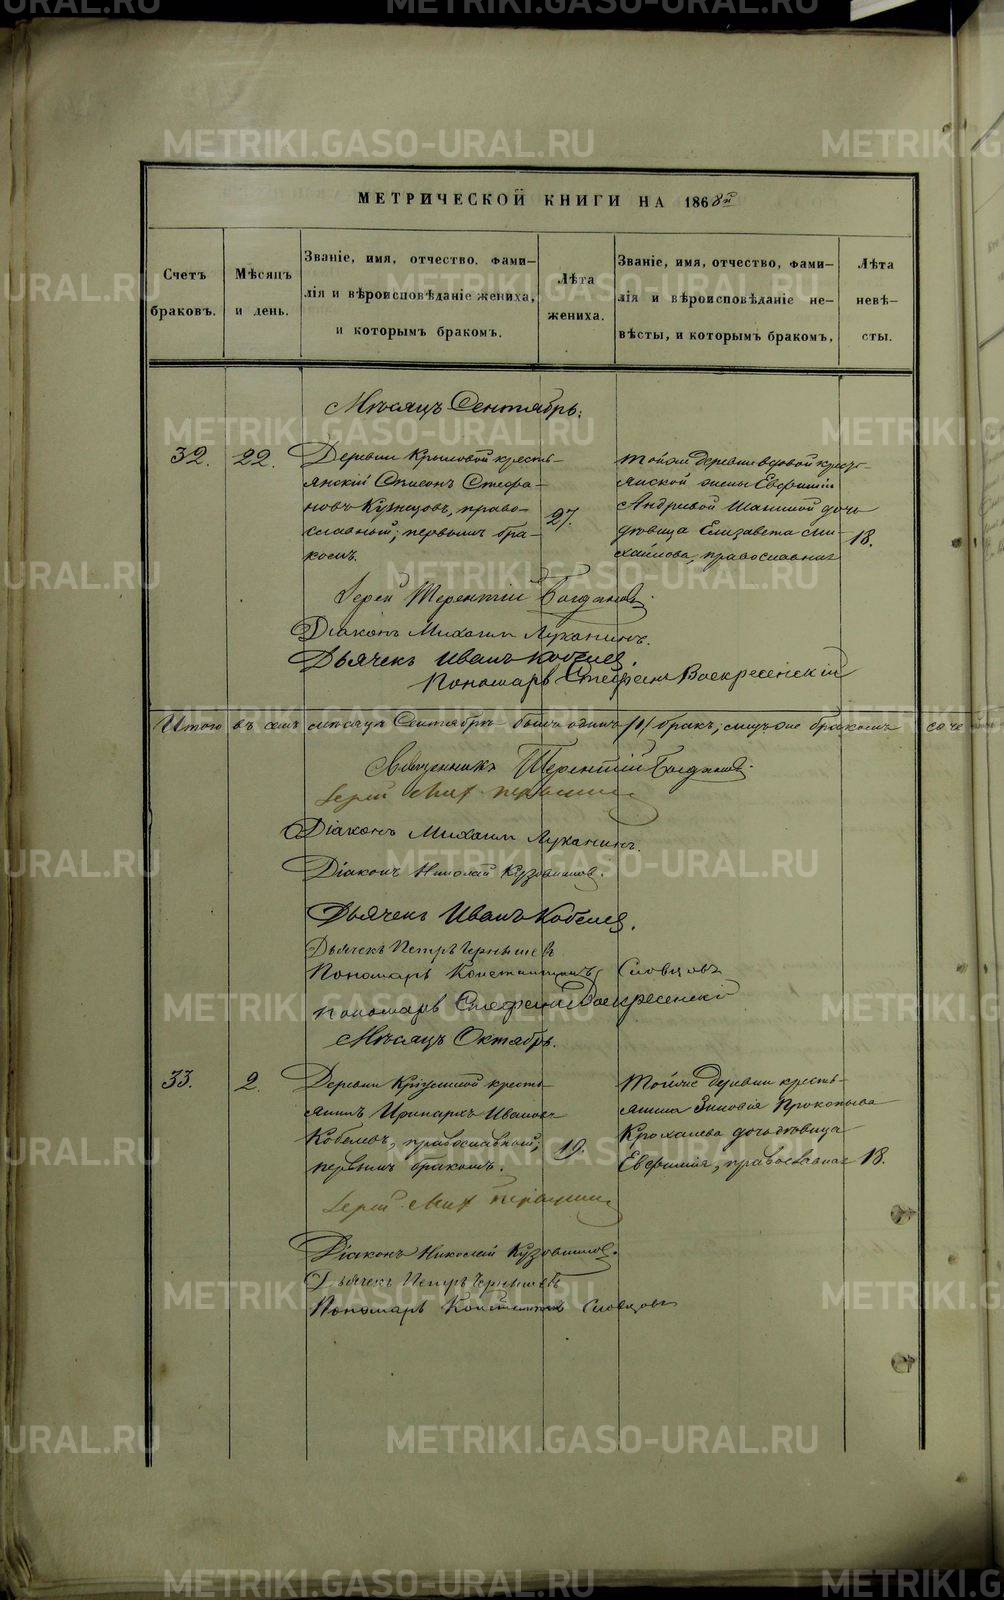 МЕТРИЧЕСКОЙ КНИГИ НА 1868й
Счетъ браковъ.
Мѣсяцъ и день.
Званіе, имя, отчество, фами-
лія и вѣроисповѣданіе жениха,
и которымъ бракомъ.
Лѣта жениха.
Званіе, имя, отчество, фами-
лія и вѣроисповѣданіе не-
вѣсты, и которымъ бракомъ,
Лѣта невѣ-
сты.
Мѣсяцъ Сентябрь.
32. 22.
Деревни кресть-
янскій Стефа-
новъ Кузнецовъ, право-
славный; первымъ бра-
комъ.
27.
тойже деревни крест-
янской жены Евфиміи
Андреевой дочь
дѣвица Елизавета Ми-
хайлова, православная
18.
Іерей Терентій Богдановъ.
Діаконъ Михаилъ Луканинъ.
Дьячекъ Иванъ Кобелев.
Пономарь Стефанъ Воскресенскій
Итого въ семъ мѣсяцѣ Сентябрѣ былъ одинъ /1/ бракъ; бракомъ соче
Священникъ Терентій Богдановъ.
Іерей Мих
Діаконъ Михаилъ Луканинъ.
Діаконъ Николай
Дьячекъ Иванъ Кобелев.
Дьячекъ Петръ Чернышевъ
Пономарь Константинъ Словцовъ
Пономарь Стефанъ Воскресенскій
Мѣсяцъ Октябрь.
33. 2.
Деревни кресть-
янинъ Иринархъ Ивановъ
Кобелевъ, православный;
первымъ бракомъ.
19.
Тойже деревни кресть-
янина Зиновія Прокопьева
Крохалева дочь дѣвица
Евфимія, православная
18.
Іерей Мих
Діаконъ Николай
Дьячекъ Петръ Чернышевъ
Пономарь Константинъ Словцовъ
METRIKI.GASO-URAL.RU